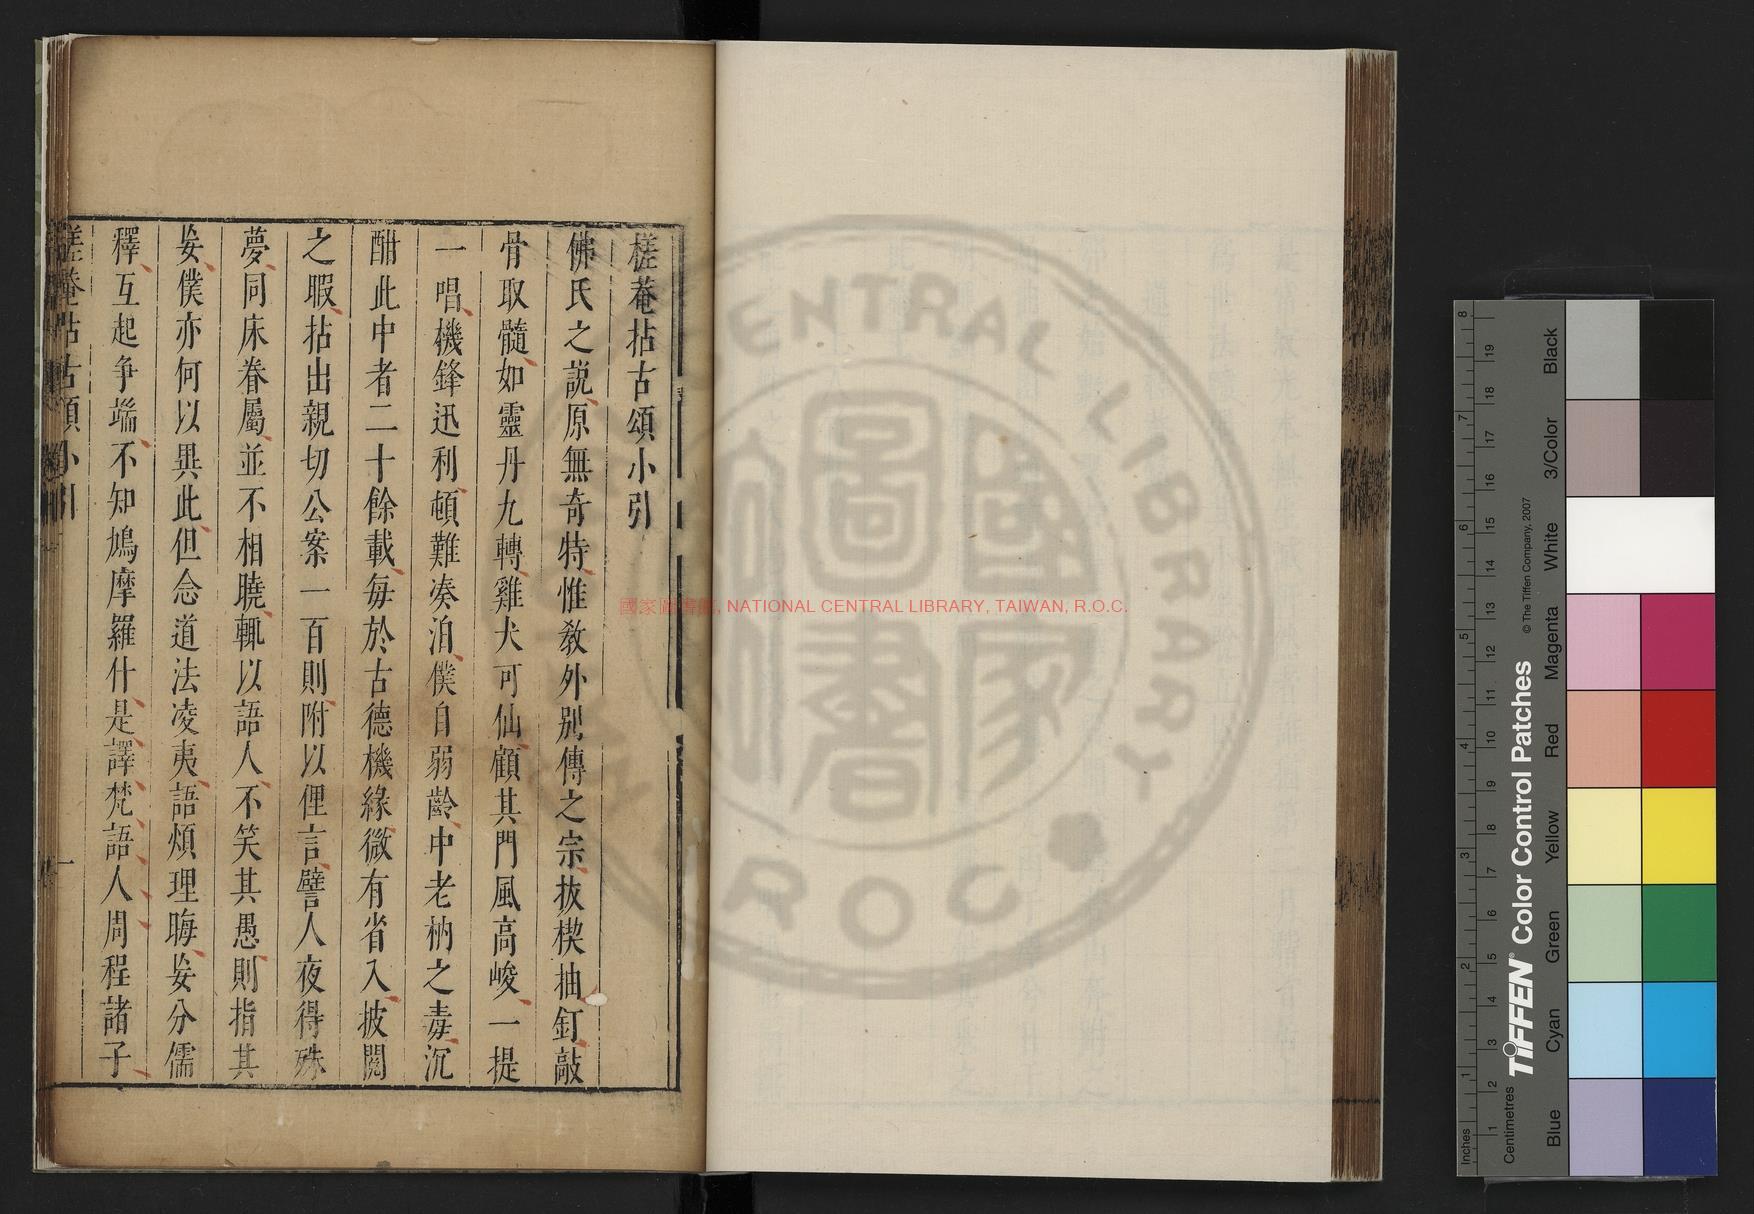 槎菴拈古頌小引
佛氏之説原無奇特惟敎外別傳之宗抜楔抽釘敲
骨取髓如靈丹九轉雞犬可仙顧其門風高峻一提
一唱機鋒迅利頓難凑泊僕自弱齡中老衲之毒沉
酣此中者二十餘載每於古德機緣微有省入披閱
之暇拈出親切公案一百則附以俚言譬人夜得殊
夢同床眷屬並不相曉輒以語人不笑其愚則指其
妄僕亦何以異此但念道法凌夷語煩理晦妄分儒
釋互起争端不知鳩摩羅什是譯梵語人周程諸子
槎菴拈古頌小引
一
國家圖書館, NATIONAL CENTRAL LIBRARY, TAIWAN, R.O.C.
NATIONAL CENTRAL LIBRARY
R.O.C.
國家
圖書
Inches
Centimetres
TIFFEN Color Control Patches
© The Tiffen Company, 2007
Blue
Cyan
Green
Yellow
Red
Magenta
White
3/Color
Black